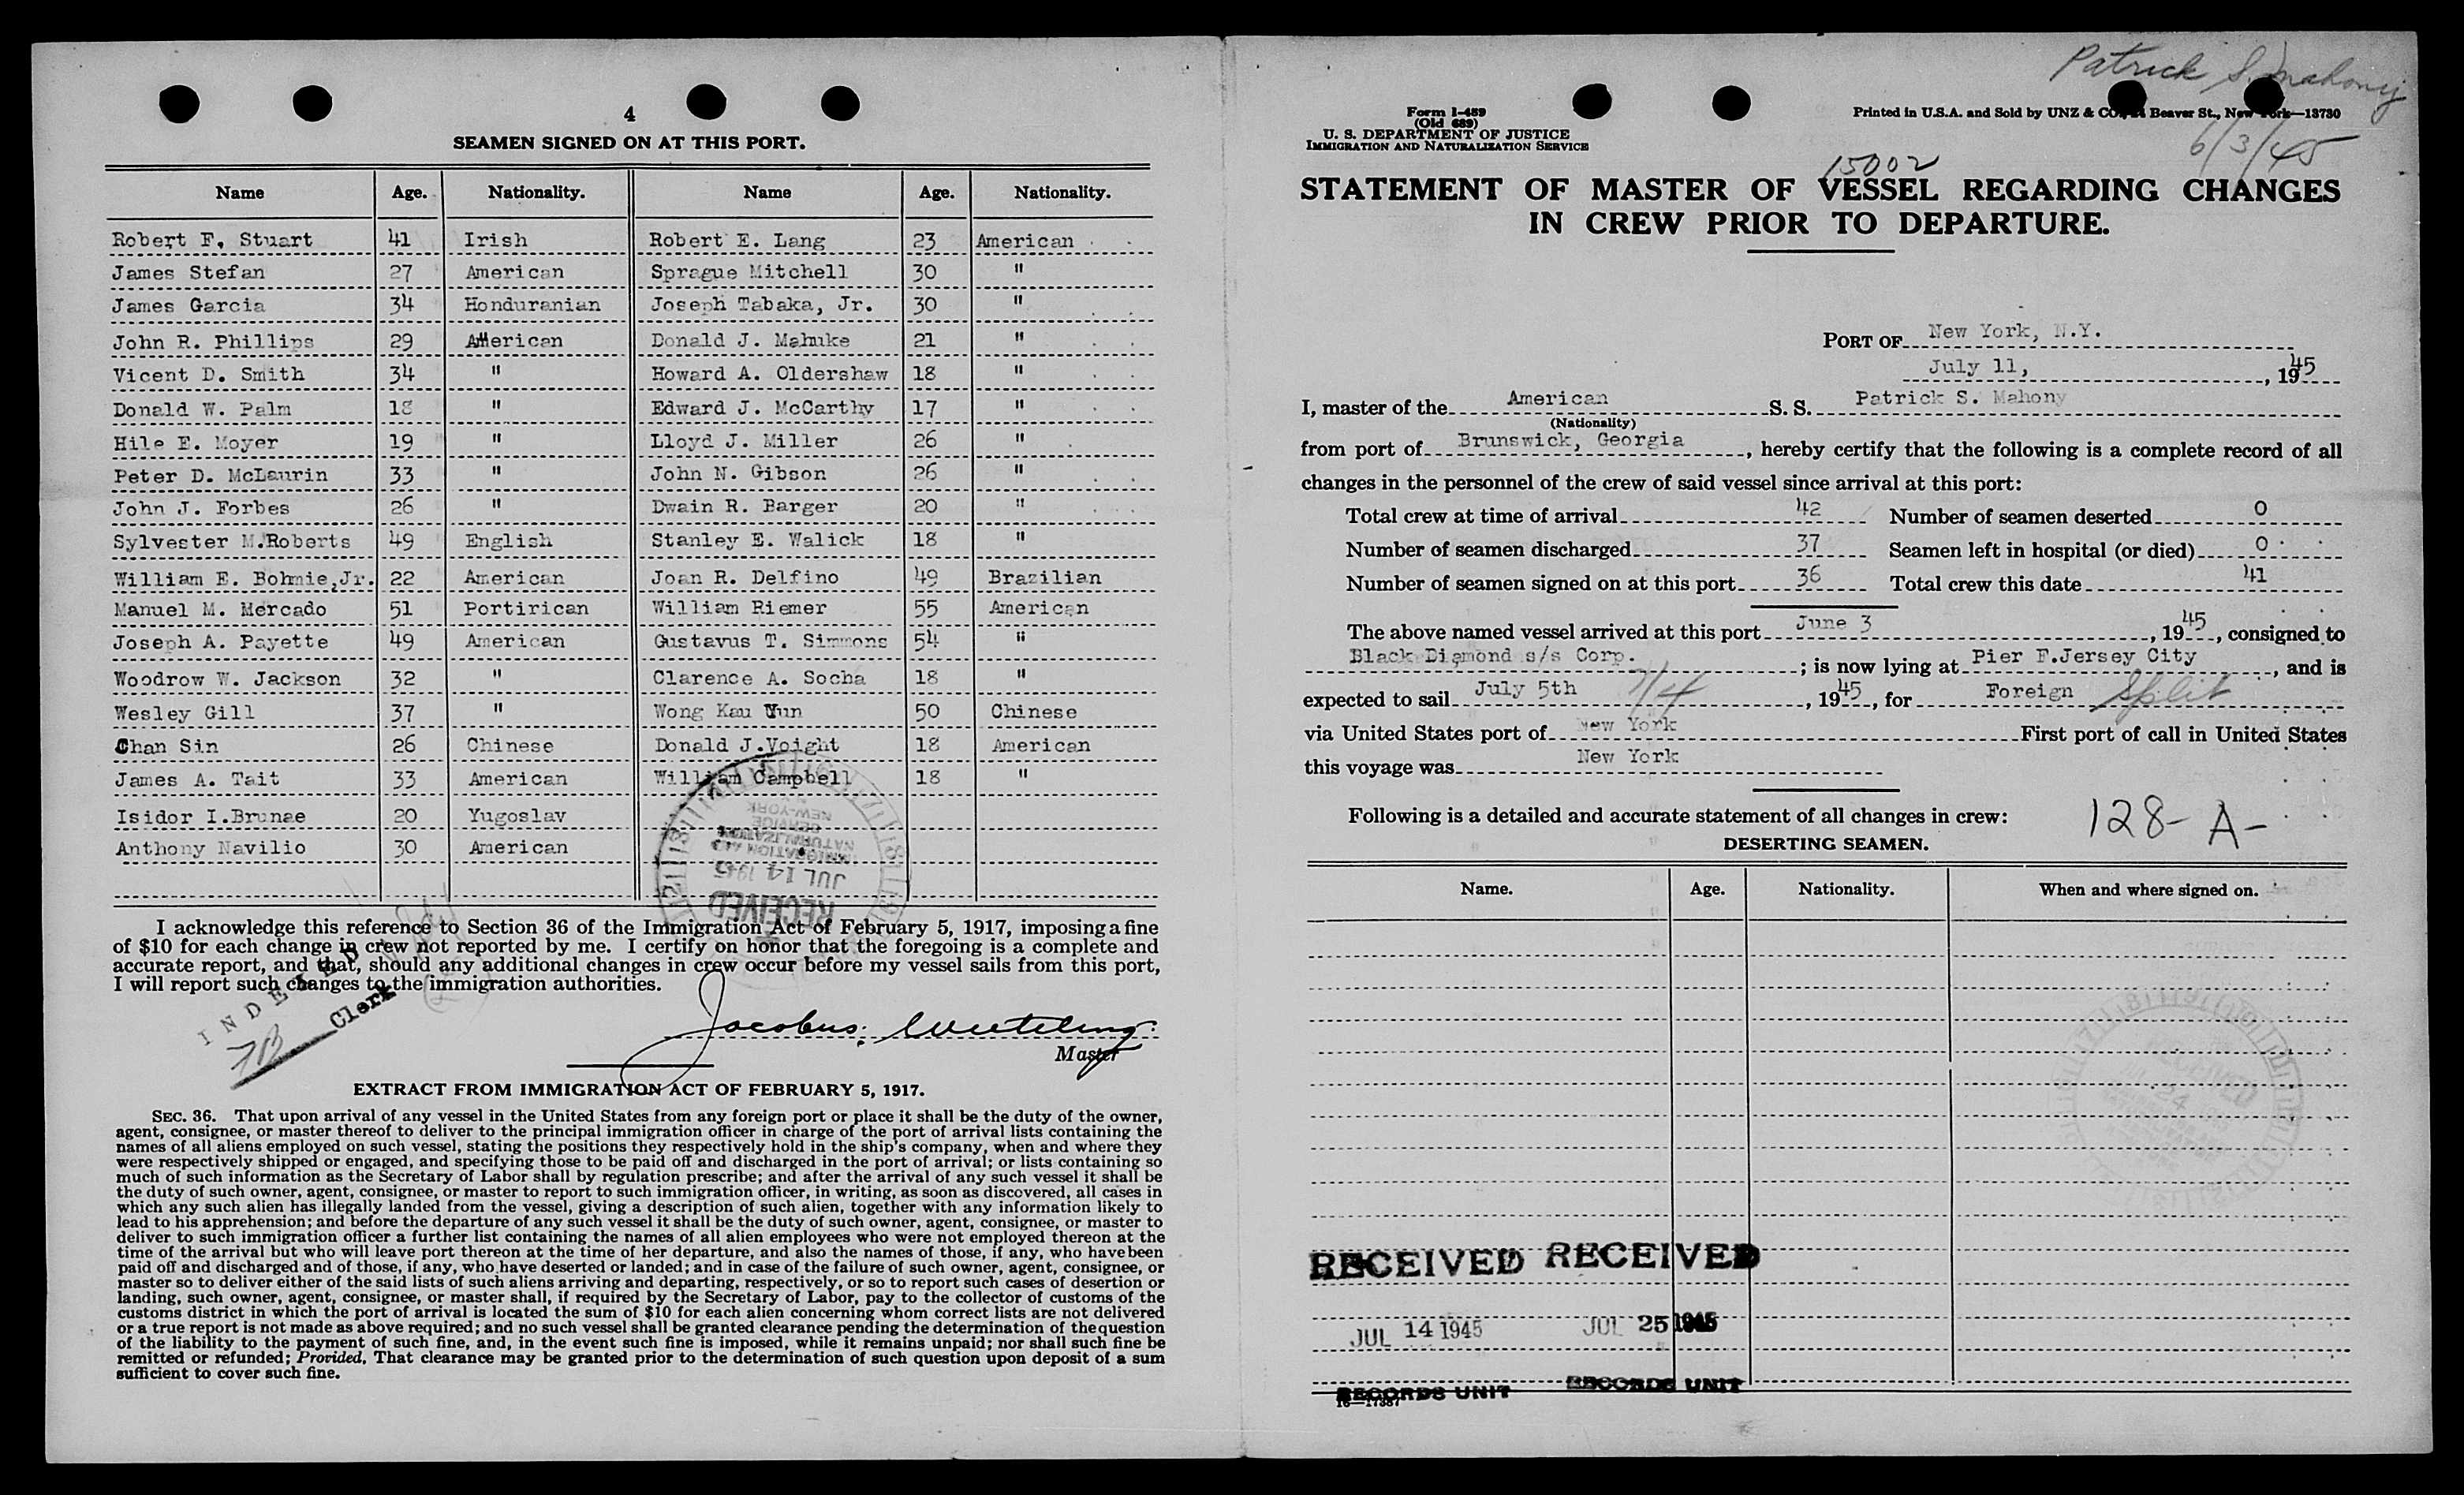 4
SEAMEN SIGNED ON AT THIS PORT.
Name Age. Nationality. Name Age. Nationality.
Robert F. Stuart 41 Irish Robert E. Lang 23 American
James Stefan 27 American Sprague Mitchell 30 "
James Garcia 34 Honduranian Joseph Tabaka, Jr. 30 "
John R. Phillips 29 American Donald J. Mahnke 21 "
Vicent D. Smith 34 " Howard A. Oldershaw 18 "
Donald W. Palm 18 " Edward J. McCarthy 17 "
Hile E. Moyer 19 " Lloyd J. Miller 26 "
Peter D. McLaurin 33 " John N. Gibson 26 "
John J. Forbes 26 " Dwain R. Barger 20 "
Sylvester M.Roberts 49 English Stanley E. Walick 18 "
William E. Bohmie,Jr. 22 American Joan R. Delfino 49 Brazilian
Manuel M. Mercado 51 Portirican William Riemer 55 American
Joseph A. Payette 49 American Gustavus T. Simmons 54 "
Woodrow W. Jackson 32 " Clarence A. Socha 18 "
Wesley Gill 37 " Wong Kau Yun 50 Chinese
Chan Sin 26 Chinese Donald J.Voight 18 American
James A. Tait 33 American William Campbell 18 "
Isidor I.Brunae 20 Yugoslav
Anthony Navilio 30 American
RECEIVED
JUL 14 1945
IMMIGRATION AND
NATURALIZATION
SERVICE
NEW-YORK
I acknowledge this reference to Section 36 of the Immigration Act of February 5, 1917, imposing a fine
of $10 for each change in crew not reported by me. I certify on honor that the foregoing is a complete and
accurate report, and that, should any additional changes in crew occur before my vessel sails from this port,
I will report such changes to the immigration authorities.
INDEXED
Clerk
Jacobus
Master
EXTRACT FROM IMMIGRATION ACT OF FEBRUARY 5, 1917.
SEC. 36. That upon arrival of any vessel in the United States from any foreign port or place it shall be the duty of the owner,
agent, consignee, or master thereof to deliver to the principal immigration officer in charge of the port of arrival lists containing the
names of all aliens employed on such vessel, stating the positions they respectively hold in the ship's company, when and where they
were respectively shipped or engaged, and specifying those to be paid off and discharged in the port of arrival; or lists containing so
much of such information as the Secretary of Labor shall by regulation prescribe; and after the arrival of any such vessel it shall be
the duty of such owner, agent, consignee, or master to report to such immigration officer, in writing, as soon as discovered, all cases in
which any such alien has illegally landed from the vessel, giving a description of such alien, together with any information likely to
lead to his apprehension; and before the departure of any such vessel it shall be the duty of such owner, agent, consignee, or master to
deliver to such immigration officer a further list containing the names of all alien employees who were not employed thereon at the
time of the arrival but who will leave port thereon at the time of her departure, and also the names of those, if any, who have been
paid off and discharged and of those, if any, who have deserted or landed; and in case of the failure of such owner, agent, consignee, or
master so to deliver either of the said lists of such aliens arriving and departing, respectively, or so to report such cases of desertion or
landing, such owner, agent, consignee, or master shall, if required by the Secretary of Labor, pay to the collector of customs of the
customs district in which the port of arrival is located the sum of $10 for each alien concerning whom correct lists are not delivered
or a true report is not made as above required; and no such vessel shall be granted clearance pending the determination of the question
of the liability to the payment of such fine, and, in the event such fine is imposed, while it remains unpaid; nor shall such fine be
remitted or refunded; Provided, That clearance may be granted prior to the determination of such question upon deposit of a sum
sufficient to cover such fine.
Patrick S. Mahony
6/3/45
Form I-489
(Old 689)
U. S. DEPARTMENT OF JUSTICE
IMMIGRATION AND NATURALIZATION SERVICE
Printed in U.S.A. and Sold by UNZ & CO., Beaver St., New York—13730
15002
STATEMENT OF MASTER OF VESSEL REGARDING CHANGES
IN CREW PRIOR TO DEPARTURE.
PORT OF New York, N.Y.
July 11, , 1945
I, master of the American S. S. Patrick S. Mahony
(Nationality)
from port of Brunswick, Georgia , hereby certify that the following is a complete record of all
changes in the personnel of the crew of said vessel since arrival at this port:
Total crew at time of arrival 42 Number of seamen deserted 0
Number of seamen discharged 37 Seamen left in hospital (or died) 0
Number of seamen signed on at this port 36 Total crew this date 41
The above named vessel arrived at this port June 3 , 1945, consigned to
Black Diamond s/s Corp. ; is now lying at Pier F.Jersey City , and is
expected to sail July 5th 7/4 , 1945, for Foreign Split
via United States port of New York First port of call in United States
this voyage was New York
Following is a detailed and accurate statement of all changes in crew: 128-A-
DESERTING SEAMEN.
Name. Age. Nationality. When and where signed on.
RECEIVED RECEIVED
JUL 14 1945 JUL 25 1945
RECORDS UNIT RECORDS UNIT
16—17387